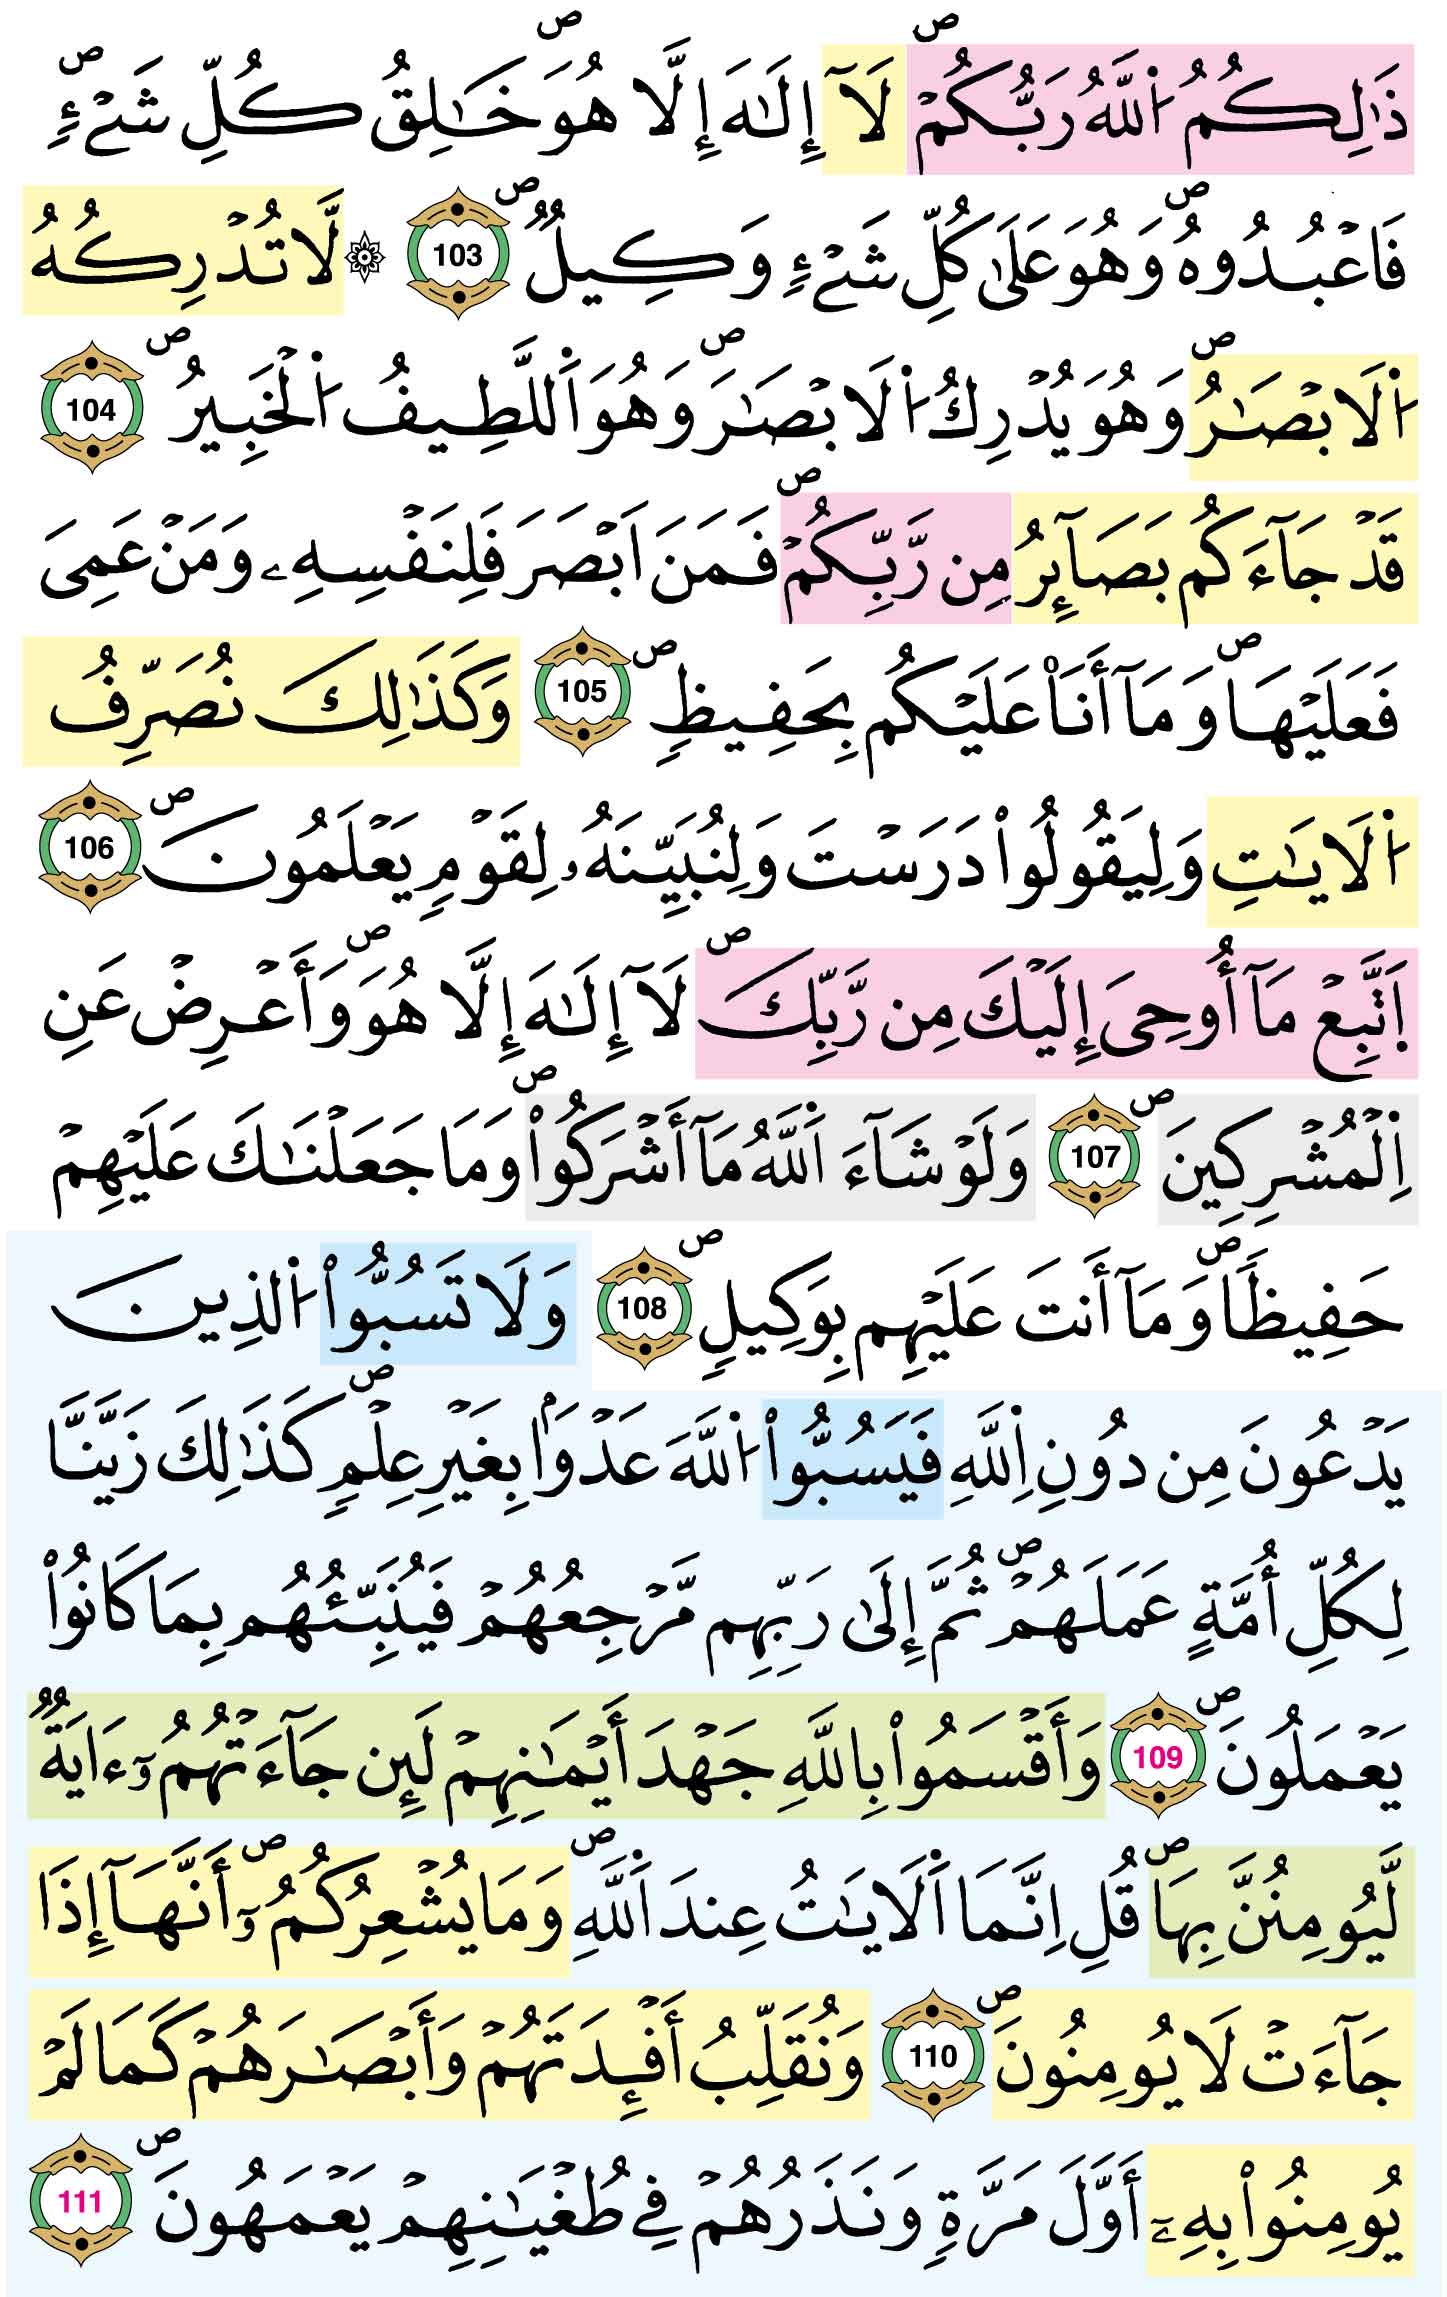 ذَٰلِكُمُ اُ۬للَّهُ رَبُّكُمْۖ لَآ إِلَٰهَ إِلَّا هُوَۖ خَٰلِقُ كُلِّ شَےْءٖۖ
فَاعْبُدُوهُۖ وَهُوَ عَلَىٰ كُلِّ شَےْءٖ وَكِيلٞۖ 103 ۞ لَّا تُدْرِكُهُ
اُ۬لَابْصَٰرُۖ وَهُوَ يُدْرِكُ اُ۬لَابْصَٰرَۖ وَهُوَ اَ۬للَّطِيفُ اُ۬لْخَبِيرُۖ 104
قَدْ جَآءَكُم بَصَآئِرُ مِن رَّبِّكُمْۖ فَمَنَ اَبْصَرَ فَلِنَفْسِهِۦ وَمَنْ عَمِيَ
فَعَلَيْهَاۖ وَمَآ أَنَا۠ عَلَيْكُم بِحَفِيظٖۖ 105 وَكَذَٰلِكَ نُصَرِّفُ
اُ۬لَايَٰتِ وَلِيَقُولُواْ دَرَسْتَ وَلِنُبَيِّنَهُۥ لِقَوْمٖ يَعْلَمُونَۖ 106
اَ۪تَّبِعْ مَآ أُوحِيَ إِلَيْكَ مِن رَّبِّكَۖ لَآ إِلَٰهَ إِلَّا هُوَۖ وَأَعْرِضْ عَنِ
اِ۬لْمُشْرِكِينَۖ 107 وَلَوْ شَآءَ اَ۬للَّهُ مَآ أَشْرَكُواْۖ وَمَا جَعَلْنَٰكَ عَلَيْهِمْ
حَفِيظاٗۖ وَمَآ أَنتَ عَلَيْهِم بِوَكِيلٖۖ 108 وَلَا تَسُبُّواْ اُ۬لذِينَ
يَدْعُونَ مِن دُونِ اِ۬للَّهِ فَيَسُبُّواْ اُ۬للَّهَ عَدْوَۢا بِغَيْرِ عِلْمٖۖ كَذَٰلِكَ زَيَّنَّا
لِكُلِّ أُمَّةٍ عَمَلَهُمْۖ ثُمَّ إِلَىٰ رَبِّهِم مَّرْجِعُهُمْ فَيُنَبِّئُهُم بِمَا كَانُواْ
يَعْمَلُونَۖ 109 وَأَقْسَمُواْ بِاللَّهِ جَهْدَ أَيْمَٰنِهِمْ لَئِن جَآءَتْهُمُۥٓ ءَايَةٞ
لَّيُومِنُنَّ بِهَاۖ قُلِ اِنَّمَا اَ۬لَايَٰتُ عِندَ اَ۬للَّهِۖ وَمَا يُشْعِرُكُمُۥٓۖ أَنَّهَآ إِذَا
جَآءَتْ لَا يُومِنُونَۖ 110 وَنُقَلِّبُ أَفْـِٕدَتَهُمْ وَأَبْصَٰرَهُمْ كَمَا لَمْ
يُومِنُواْ بِهِۦٓ أَوَّلَ مَرَّةٖ وَنَذَرُهُمْ فِے طُغْيَٰنِهِمْ يَعْمَهُونَۖ 111